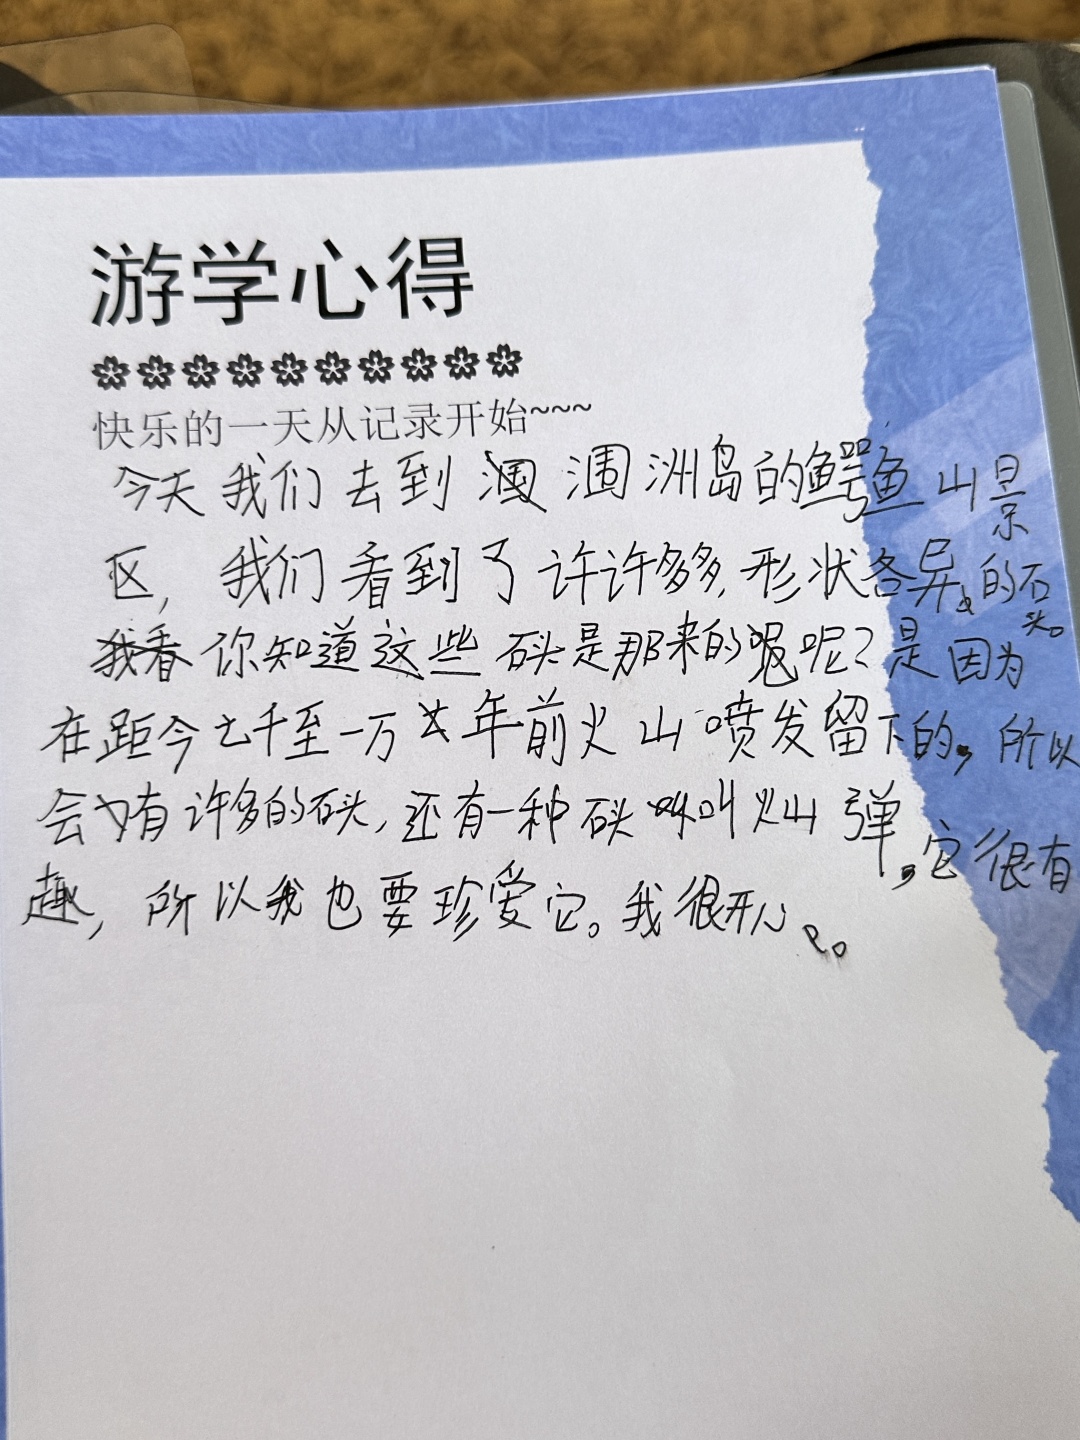 游学心得
快乐的一天从记录开始~~~
今天我们去到涠洲岛的鳄鱼山景
区，我们看到了许许多多，形状各异的石头。
你知道这些石头是那来的呢？是因为
在距今七千至一万年前火山喷发留下的，所以
会有许多的石头，还有一种石头叫火山弹，它很有
趣，所以我也要珍爱它。我很开心。